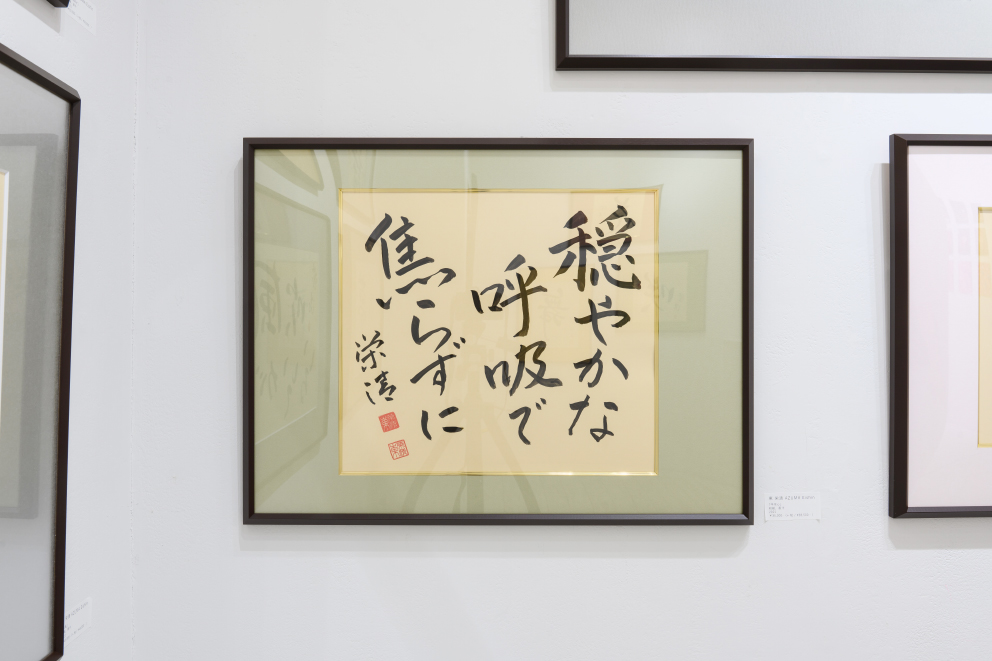 穏やかな
呼吸で
焦らずに
栄清